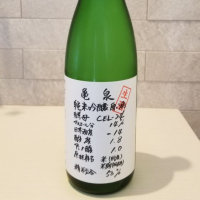 亀泉
純米吟醸 生酒
酵母 CEL-24
アルコール分 14%
日本酒度 -14
酸度 1.8
アミノ酸 1.0
原材料名 米(国産)
精米歩合 50%